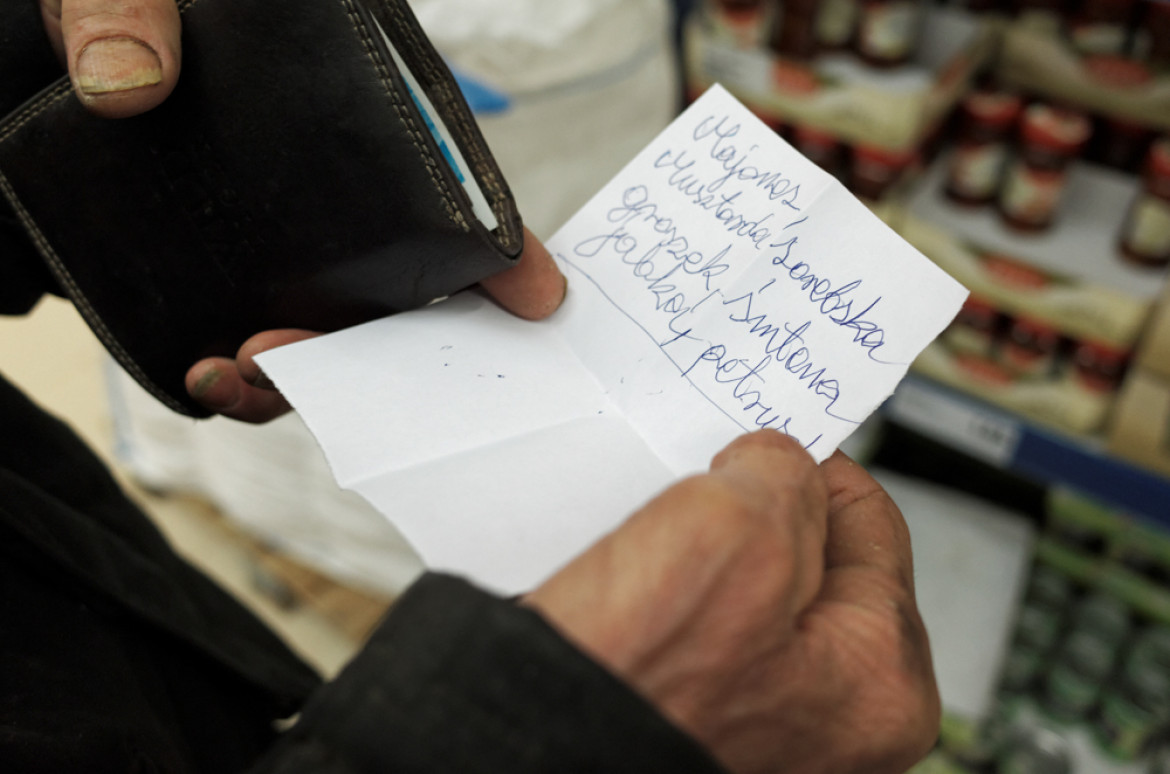 Majonez,
Musztarda sarebska
groszek, śmitana
jabkoy petrus